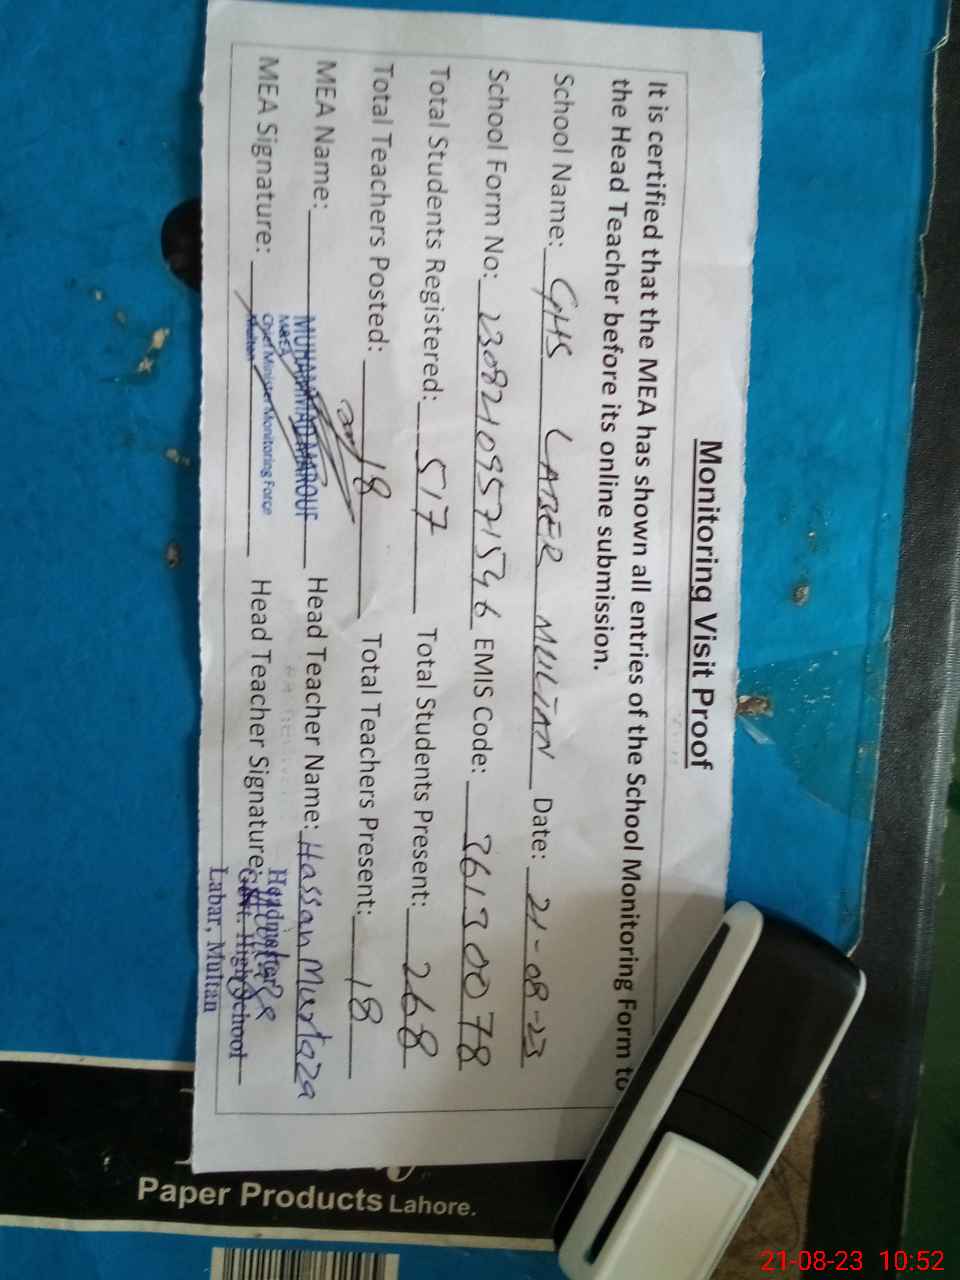 Monitoring Visit Proof
It is certified that the MEA has shown all entries of the School Monitoring Form to
the Head Teacher before its online submission.
School Name: GHS LABER MULTAN Date: 21-08-23
School Form No: 230821095715546 EMIS Code: 36130078
Total Students Registered: 517 Total Students Present: 268
Total Teachers Posted: 18 Total Teachers Present: 18
MEA Name: MUHAMMAD MAROUF Head Teacher Name: Hassan Murtaza
M&EA
Chief Minister Monitoring Force
Multan
MEA Signature: Head Teacher Signature:
Headmaster
Govt. High School
Labar, Multan
Paper Products Lahore.
21-08-23 10:52